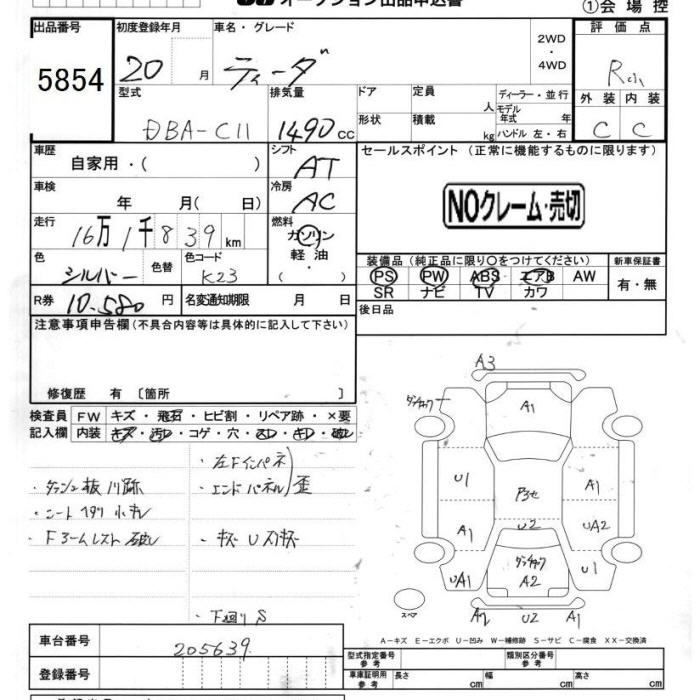 オークション出品申込書
①会場控
出品番号 初度登録年月 車名・グレード 評価点
5854 20 月 ティーダ 2WD・4WD R
型式 排気量 ドア 定員 人 ディーラー・並行 外装 内装
モデル年式 年
DBA-C11 1490 cc 形状 積載 kg ハンドル 左・右 C C
車歴 シフト セールスポイント (正常に機能するものに限ります)
自家用・( ) AT
車検 冷房
年 月( 日) AC NOクレーム・売切
走行 燃料
16万1千839km ガソリン
軽油・
( )
色 色替 色コード 装備品(純正品に限り○をつけてください) 新車保証書
シルバー K23 PS PW ABS エアB AW 有・無
SR ナビ TV カワ
R券 10.580 円 名変通知期限 月 日 後日品
注意事項申告欄(不具合内容等は具体的に記入して下さい)
修復歴 有 〔箇所 〕
検査員 FW キズ・飛石・ヒビ割・リペア跡・×要
記入欄 内装 キズ・汚レ・コゲ・穴・スレ・キレ・破レ
・左Fインパネ
・エンドパネル 歪
・シートヘタリ
・下廻りS
A3
A1
U1
A1
A1
U2
UA2
UA1
A2
U1
スペア
A2 U2 A1
A-キズ E-エクボ U-凹み W-補修跡 S-サビ C-腐食 XX-交換済
車台番号 205639
型式指定番号 参考 類別区分番号 参考
登録番号 車庫証明用 参考 長さ cm 幅 cm 高さ cm